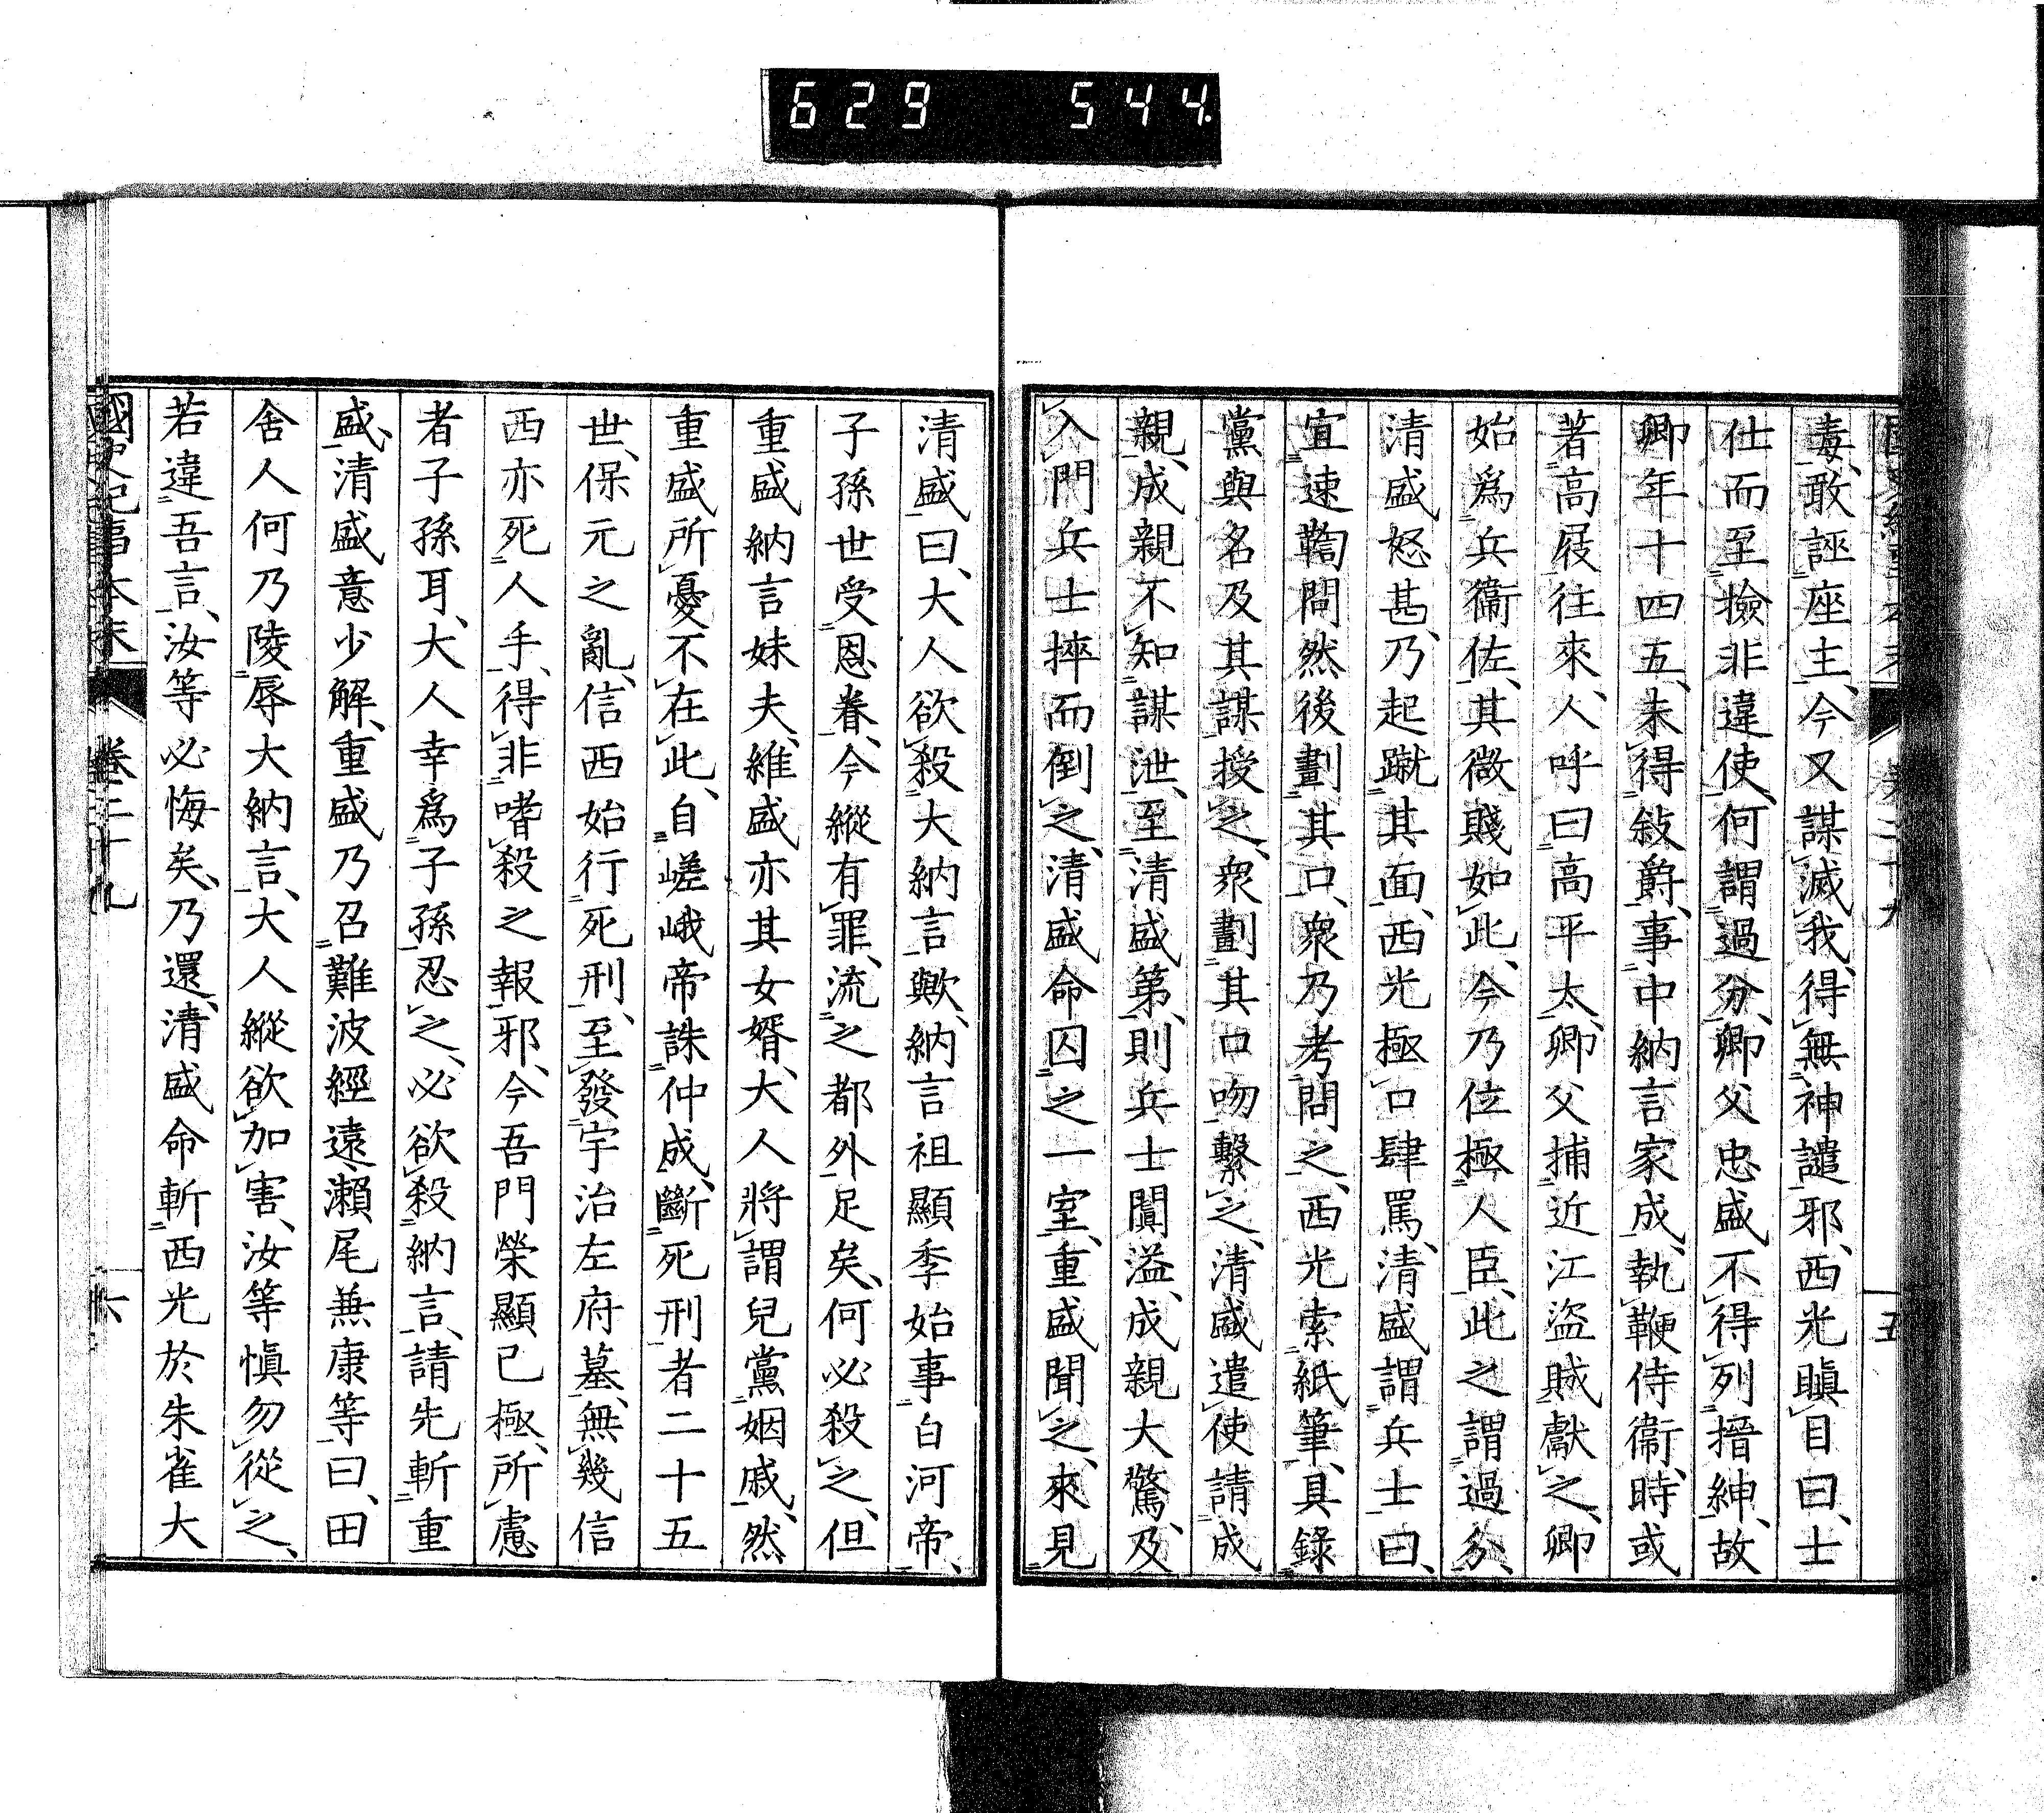 629 544
毒、敢誣座主、今又謀滅我、得無神譴邪、西光瞋目曰、士
仕而至撿非違使、何謂過分、卿父忠盛、不得列搢紳、故
卿年十四五、未得敍爵、事中納言家成、執鞭侍衞、時或
著高屐往來、人呼曰高平太、卿父捕近江盜賊獻之、卿
始爲兵衞佐、其微賤如此、今乃位極人臣、此之謂過分、
清盛怒甚、乃起蹴其面、西光極口肆罵、清盛謂兵士曰、
宜速鞫問然後劃其口、衆乃考問之、西光索紙筆、具錄
黨與名及其謀授之、衆劃其口吻繫之、清盛遣使請成
親、成親不知謀泄、至清盛第、則兵士闐溢、成親大驚、及
入門兵士捽而倒之、清盛命囚之一室、重盛聞之、來見
五
清盛曰、大人欲殺大納言歟、納言祖顯季始事白河帝、
子孫世受恩眷、今縱有罪、流之都外足矣、何必殺之、但
重盛納言妹夫、維盛亦其女婿、大人將謂兒黨姻戚、然
重盛所憂不在此、自嵯峨帝誅仲成、斷死刑者二十五
世、保元之亂、信西始行死刑、至發宇治左府墓、無幾信
西亦死人手、得非嗜殺之報邪、今吾門榮顯已極、所慮
者子孫耳、大人幸爲子孫忍之、必欲殺納言、請先斬重
盛、清盛意少解、重盛乃召難波經遠、瀨尾兼康等曰、田
舍人何乃陵辱大納言、大人縱欲加害、汝等愼勿從之、
若違吾言、汝等必悔矣、乃還、清盛命斬西光於朱雀大
國史紀事本末 卷二十九 六